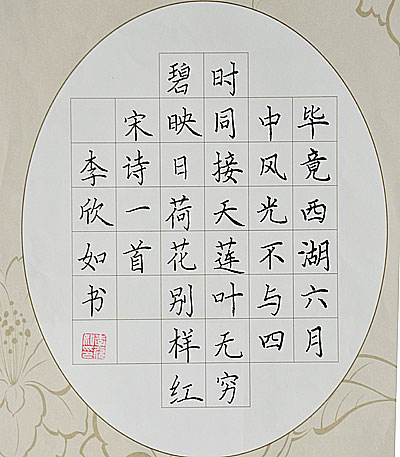 毕竟西湖六月
中风光不与四
时同接天莲叶无穷
碧映日荷花别样红
宋诗一首
李欣如书